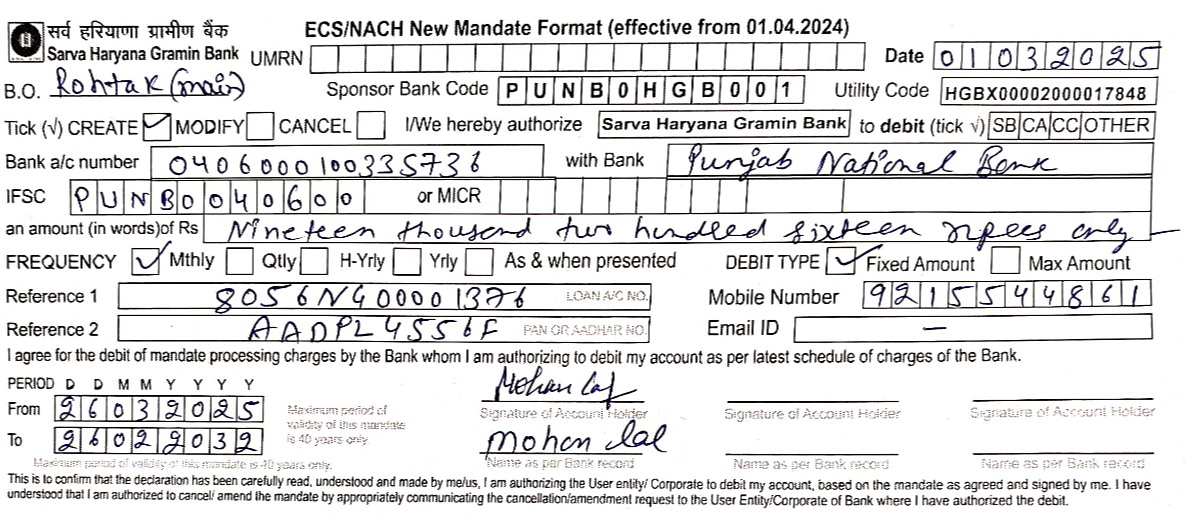 सर्व हरियाणा ग्रामीण बैंक ECS/NACH New Mandate Format (effective from 01.04.2024)
Sarva Haryana Gramin Bank UMRN Date 01032025
B.O. Rohtak (main) Sponsor Bank Code PUNB0HGB001 Utility Code HGBX00002000017848
Tick (√) CREATE ✓ MODIFY CANCEL I/We hereby authorize Sarva Haryana Gramin Bank to debit (tick √) SB CA CC OTHER
Bank a/c number 0406000100335736 with Bank Punjab National Bank
IFSC PUNB0040600 or MICR
an amount (in words)of Rs Nineteen thousand two hundred sixteen rupees only
FREQUENCY ✓ Mthly Qtly H-Yrly Yrly As & when presented DEBIT TYPE ✓ Fixed Amount Max Amount
Reference 1 8056NG00001376 LOAN A/C NO. Mobile Number 9215544861
Reference 2 AADPL4556F PAN OR AADHAR NO. Email ID —
I agree for the debit of mandate processing charges by the Bank whom I am authorizing to debit my account as per latest schedule of charges of the Bank.
PERIOD D D M M Y Y Y Y
From 26032025 Maximum period of validity of this mandate is 40 years only.
To 26022032
Maximum period of validity of this mandate is 40 years only.
Mohan Lal
Signature of Account Holder Signature of Account Holder Signature of Account Holder
Mohan Lal
Name as per Bank record Name as per Bank record Name as per Bank record
This is to confirm that the declaration has been carefully read, understood and made by me/us, I am authorizing the User entity/ Corporate to debit my account, based on the mandate as agreed and signed by me. I have
understood that I am authorized to cancel/ amend the mandate by appropriately communicating the cancellation/amendment request to the User Entity/Corporate of Bank where I have authorized the debit.